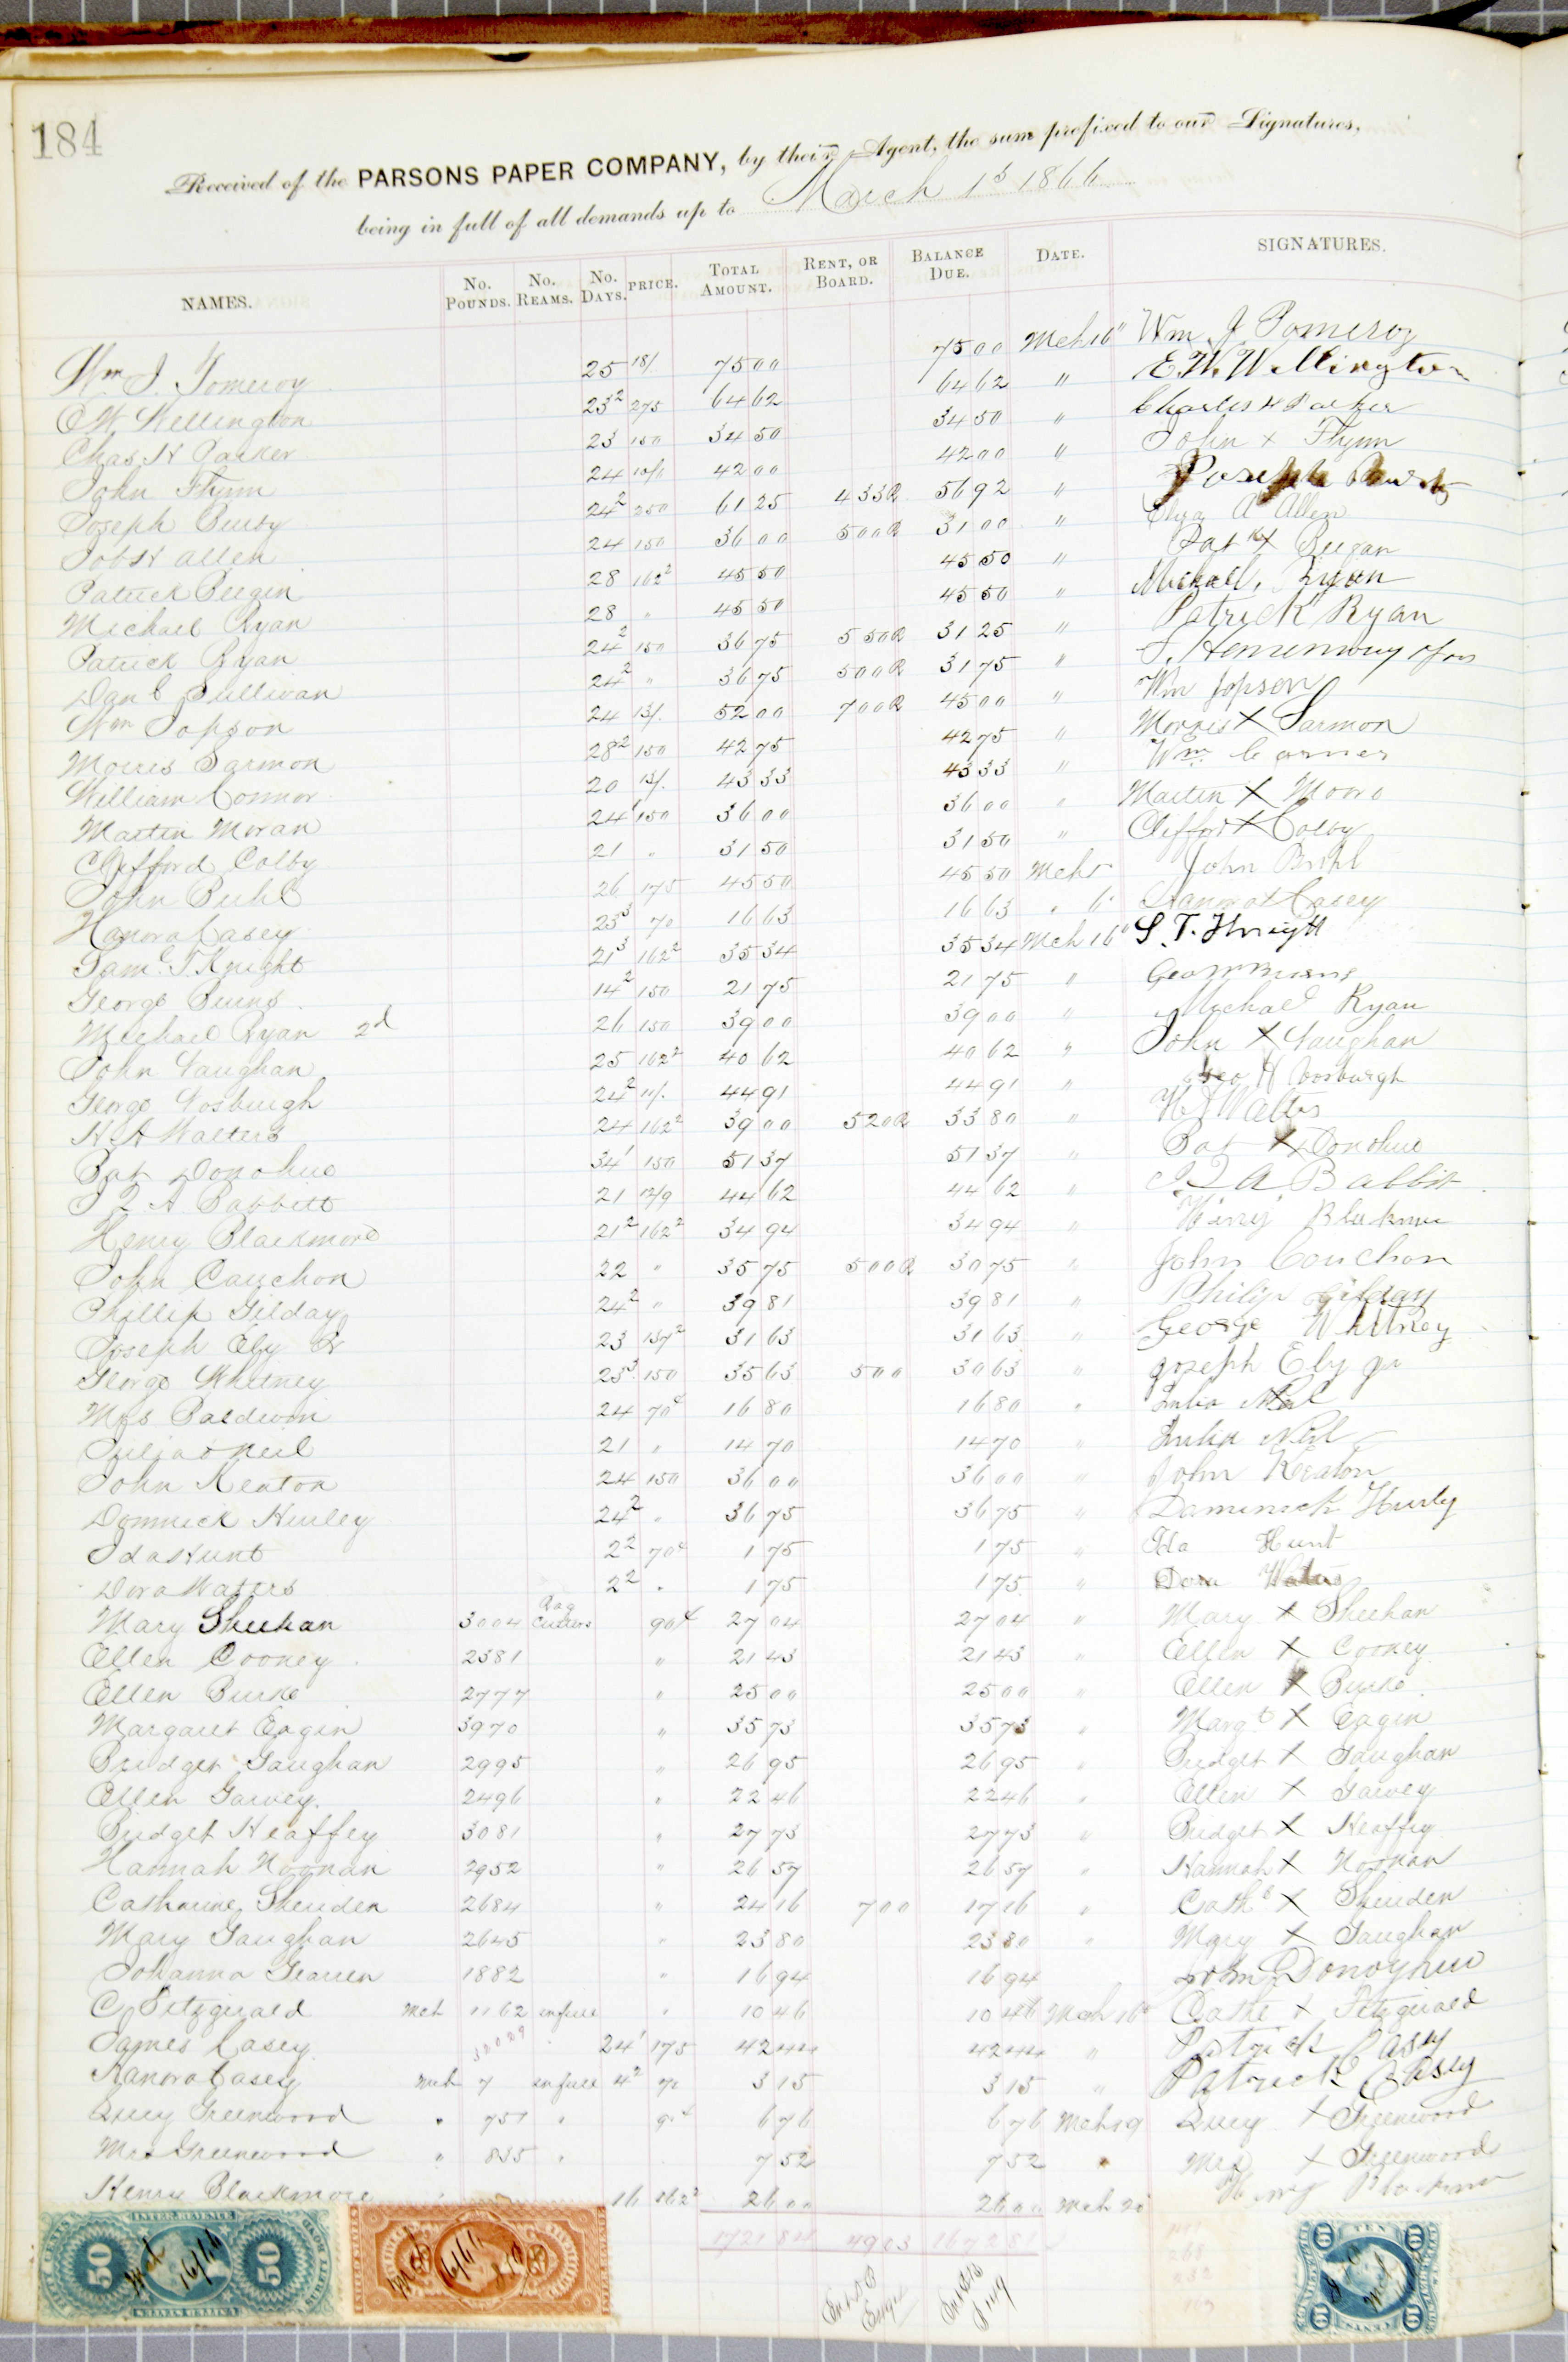 184
Received of the PARSONS PAPER COMPANY, by their Agent, the sum prefixed to our Signatures,
being in full of all demands up to March 1st 1866
NAMES. No. POUNDS. No. REAMS. No. DAYS. PRICE. TOTAL AMOUNT. RENT, OR BOARD. BALANCE DUE. DATE. SIGNATURES.
Wm J. Pomeroy 25 18/ 75 00 75 00 Mch 16" Wm J Pomeroy
E W Wellington 23² 275 64 62 64 62 " E. W. Wellington
Chas H Parker 23 150 34 50 34 50 " Charles H Parker
John Flynn 24 10/6 42 00 42 00 " John x Flynn
Joseph 24² 250 61 25 4 33 R 56 92 " Joseph
Job H Allen 24 150 36 00 5 00 R 31 00 " A Allen
Patrick 28 162² 45 50 45 50 " Pat X
Michael Ryan 28 " 45 50 45 50 " Ryan
Patrick Ryan 24² 150 36 75 5 50 R 31 25 " Patrick Ryan
Danl Sullivan 24² " 36 75 5 00 R 31 75 "
Wm Jopson 24 13/. 52 00 7 00 R 45 00 " Wm Jopson
Morris Sarmon 28² 150 42 75 42 75 " Morris X Sarmon
William Connor 20 13/. 43 33 43 33 " Wm
Martin Moran 24 150 36 00 36 00 " Martin X
Clifford Colby 21 " 31 50 31 50 " Clifford X Colby
John 26 175 45 50 45 50 Mch John
Hanora Casey 23³ 70 16 63 16 63 " 6 Hanora X Casey
Saml T Knight 21³ 162² 35 34 35 34 Mch 16" S. T. Knight
George Burns 14² 150 21 75 21 75 " Geo Burns
Michael Ryan 2d 26 150 39 00 39 00 " Michael Ryan
John Vaughan 25 162² 40 62 40 62 " John X Vaughan
George Vosburgh 24² 11/. 44 91 44 91 " Geo H Vosburgh
H A Walters 24 162² 39 00 5 20 R 33 80 " Walters
Pat Donohue 34' 150 51 37 51 37 " Pat X Donohue
J Q A Babbitt 21 12/9 44 62 44 62 " J Q A Babbitt
Henry Blackmore 21² 162² 34 94 34 94 " Henry
John Cauchon 22 " 35 75 5 00 R 30 75 " John Couchon
Phillip Gilday 24² " 39 81 39 81 " Philip Gilday
Joseph Ely Jr 23 137² 31 63 31 63 " George Whitney
George Whitney 23³ 150 35 63 5 00 30 63 " Joseph Ely Jr
Mrs Baldwin 24 70¢ 16 80 16 80 " Julia
Julia O Neil 21 " 14 70 14 70 " Julia
John Keaton 24 150 36 00 36 00 " John Keaton
Domnick Hurley 24² " 36 75 36 75 " Daminick Hurly
Ida Hunt 2² 70¢ 1 75 1 75 " Ida Hunt
Dora Waters 2² " 1 75 1 75 " Dora Waters
Mary Sheehan 3004 Rag Cutters 90¢ 27 04 27 04 " Mary X Sheehan
Ellen Cooney 2381 " 21 43 21 43 " Ellen X Cooney
Ellen Burke 2777 " 25 00 25 00 " Ellen X Burke
Margaret Eagin 3970 " 35 73 35 73 " Margt X Eagin
Bridget Gaughan 2995 " 26 95 26 95 " Bridget X Gaughan
Ellen Garvey 2496 " 22 46 22 46 " Ellen X Garvey
Bridget Heaffey 3081 " 27 73 27 73 " Bridget X Heaffey
Hannah Noonan 2952 " 26 57 26 57 " Hannah X Noonan
Catharine 2684 " 24 16 7 00 17 16 " Cath X
Mary Gaughan 2645 " 23 80 23 80 " Mary X Gaughan
Johanna 1882 " 16 94 16 94
C Fitzgerald Mch 1162 in full " 10 46 10 46 Mch 16 Cathe X Fitzgerald
James Casey 24' 175 42 44 42 44 " Patrick Casey
Hanora Casey Mch 7 in full 4² 70 3 15 3 15 " Patrick Casey
Lucy Greenwood " 751 " 90¢ 6 76 6 76 Mch 19 Lucy X Greenwood
Mrs Greenwood " 835 " 7 52 7 52 " Mrs X Greenwood
Henry Blackmore 16 162² 26 00 26 00 Mch 20 Henry
1721 84 49 03 1672 81
INTER. REVENUE
50 50
TEN
10 10
10 10
CENTS